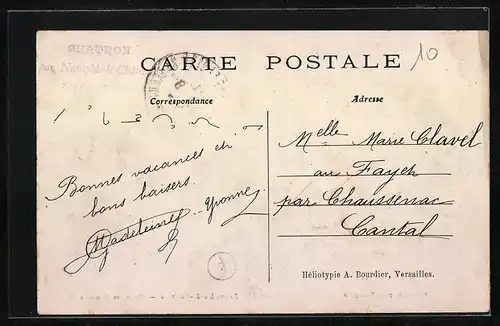 CHATRON
par Neauphle-le-Château
CARTE POSTALE
10
Correspondance
Adresse
Bonnes vacances et
bons baisers.
Madeleine Yvonne
Melle Marie Clavel
au Fayet
par Chaussenac
Cantal
Héliotypie A. Bourdier, Versailles.